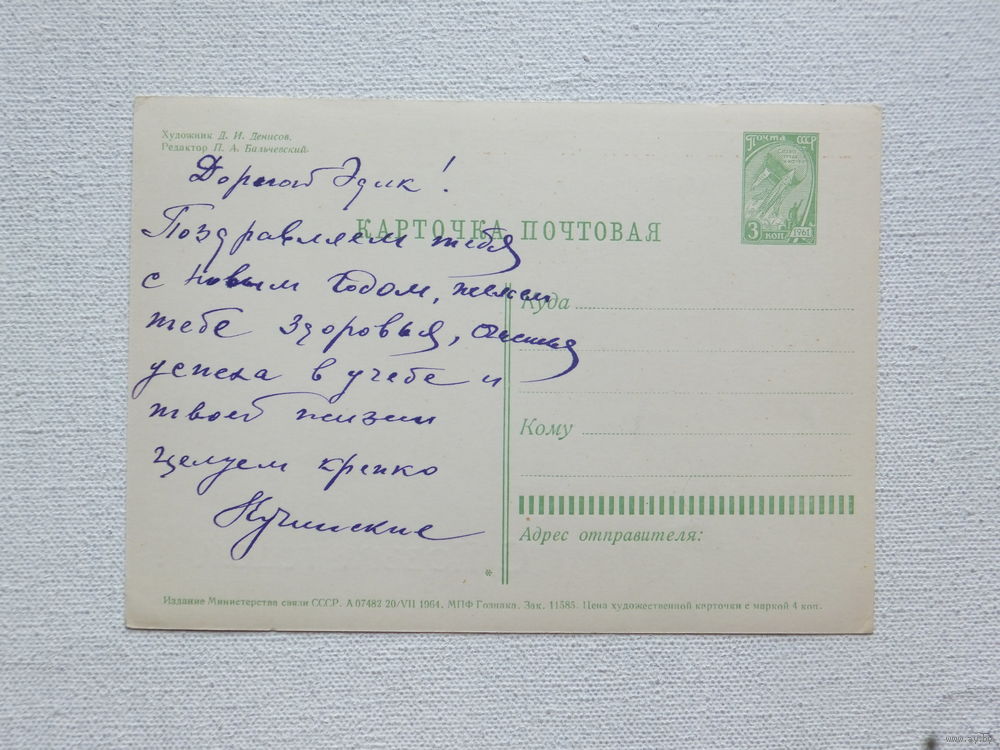 Художник Д. И. Денисов.
Редактор П. А. Бальчевский.
Почта СССР
3 коп 1961
КАРТОЧКА ПОЧТОВАЯ
Дорогой Эдик!
Поздравляем тебя
с новым годом, желаем
тебе здоровья,
успеха в учебе и
твоей жизни
целуем крепко
Кучинские
Куда
Кому
Адрес отправителя:
*
Издание Министерства связи СССР. А 07482 20/VII 1964. МПФ Гознака. Зак. 11585. Цена художественной карточки с маркой 4 коп.
www.ay.by